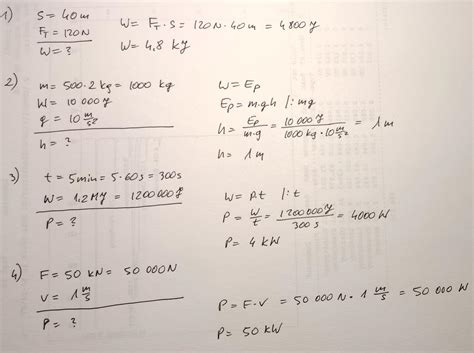 1) S = 40m
F_T = 120N
W = ?
W = F_T · S = 120N · 40m = 4800J
W = 4,8 kJ
2) m = 500·2 kg = 1000 kg
W = 10 000J
g = 10 m/s²
h = ?
W = Ep
Ep = m·g·h /: mg
h = Ep/m·g = 10 000J/1000 kg · 10 m/s² = 1m
h = 1m
3) t = 5min = 5·60s = 300s
W = 1.2MJ = 1200000J
P = ?
W = Pt /: t
P = W/t = 1200000J/300s = 4000W
P = 4 kW
4) F = 50 kN = 50 000N
v = 1 m/s
P = ?
P = F·v = 50 000N · 1 m/s = 50 000 W
P = 50 kW